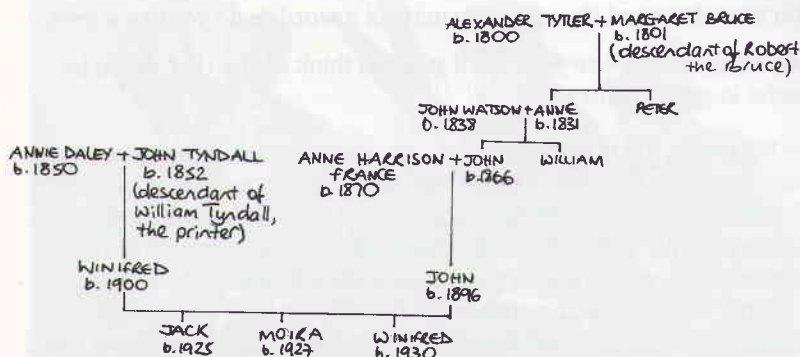 ALEXANDER TYTLER + MARGARET BRUCE
b. 1800 b. 1801
(descendant of Robert
the Bruce)
JOHN WATSON + ANNE PETER
b. 1838 b. 1831
ANNIE DALEY + JOHN TYNDALL
b. 1850 b. 1852
(descendant of
William Tyndall,
the printer)
ANNE HARRISON + JOHN WILLIAM
FRANCE b. 1866
b. 1870
WINIFRED JOHN
b. 1900 b. 1896
JACK MOIRA WINIFRED
b. 1925 b. 1927 b. 1930